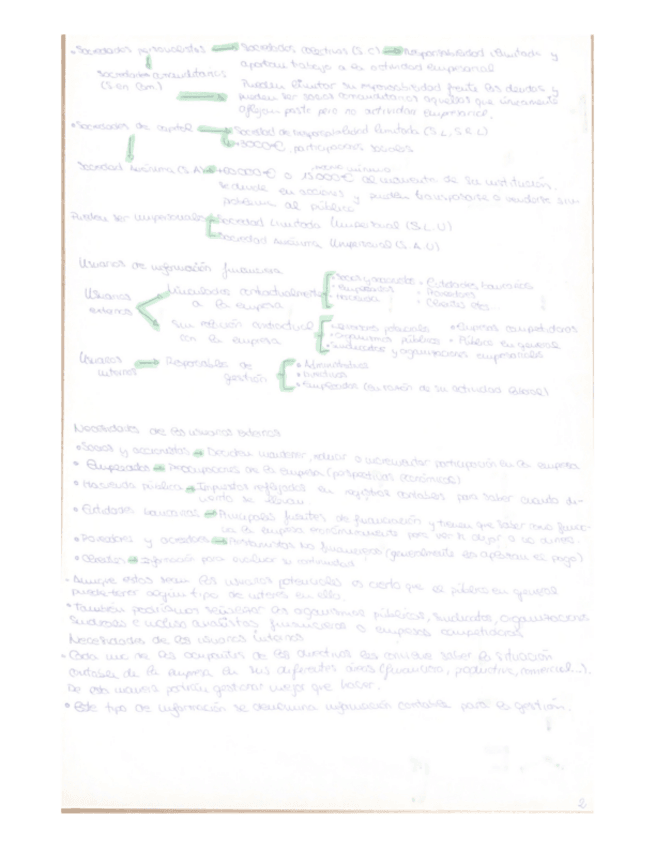 • Sociedades personalistas → Sociedades colectivas (S.C) → Responsabilidad ilimitada y
aportan trabajo a la actividad empresarial
Sociedades comanditarias
(S en Com) → Pueden limitar su responsabilidad frente las deudas y
pueden ser socios comanditarios aquellos que únicamente
parte pero no actividad empresarial.
• Sociedades de capital → Sociedad de Responsabilidad limitada (S.L, S.R.L)
+3000€, participaciones sociales
Sociedad Anónima (S.A) → 60000€ o 15000€ al momento de su constitución.
como mínimo
Se divide en acciones y pueden transpasarse o venderse sin
problema al público
Pueden ser Unipersonales Sociedad Limitada Unipersonal (S.L.U)
Sociedad Anónima Unipersonal (S.A.U)
Usuarios de información financiera
Usuarios externos
Vinculados contractualmente a la empresa
• Socios y accionistas • Entidades bancarias
• Empleados • Proveedores
• Hacienda • Clientes etc...
Sin relación contractual con la empresa
• Inversores potenciales • Empresas competidoras
• Organismos públicos • Público en general
• Sindicatos y organizaciones empresariales
Usuarios internos → Responsables de gestión
• Administradores
• Directivos
• Empleados (en razón de su actividad laboral)
Necesidades de los usuarios externos
• Socios y accionistas → Deciden mantener, reducir o incrementar participación en la empresa
• Empleados → Preocupaciones de la empresa (perspectivas económicas)
• Hacienda pública → Impuestos reflejados en registros contables para saber cuando di-
• Entidades bancarias → Principales fuentes de financiación y tienen que saber como funcio-
na la empresa económicamente para ver si dejar o no dinero.
• Proveedores y acreedores → Prestamistas no financieros (generalmente les aplazan el pago)
• Clientes → Información para evaluar su continuidad
- Aunque estos sean los usuarios potenciales es cierto que el público en general
puede tener algún tipo de interes en ella.
• También podríamos señalar los organismos públicos, sindicatos, organizaciones
sindicales e incluso analistas financieros o empresas competidoras
Necesidades de los usuarios internos
• Cada uno de los ocupantes de los directivos les conviene saber la situación
contable de la empresa en sus diferentes áreas (financiera, productiva, comercial...).
De esta manera podrían gestionar mejor que hacer.
• Este tipo de información se denomina información contable para la gestión.
2